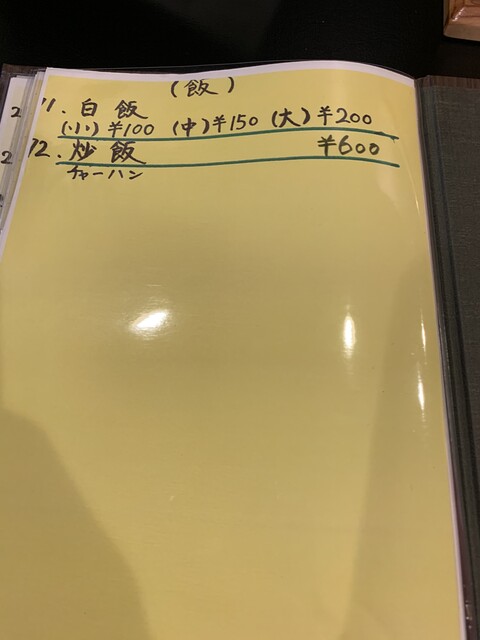 (飯)
71. 白飯
(小)¥100 (中)¥150 (大)¥200
72. 炒飯 ¥600
チャーハン